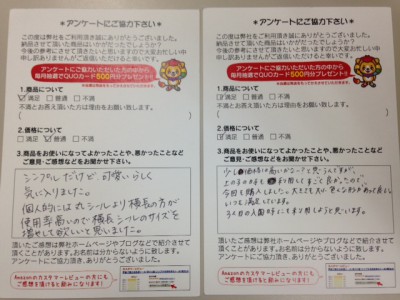 ＊アンケートにご協力下さい＊
この度は弊社をご利用頂き誠にありがとうございました。
納品させて頂いた商品はいかがだったでしょうか？
今後の参考にさせて頂きたいと思いますので大変お忙しい中
申し訳ありませんがご返信頂ければ幸いです。
アンケートにご協力いただいた方の中から
毎月抽選でQUOカード500円分プレゼント!!
1.商品について
満足 □普通 □不満
不満とお答え頂いた方は理由をお聞かせ願います。
2.価格について
□満足 普通 □不満
3.商品をお使いになってよかったことや、悪かったことなど
ご意見・ご感想などをお聞かせ下さい。
シンプルだけど可愛いらしく
気に入りました。
個人的には丸シールより横長の方が
使用率高いので横長シールのサイズを
増やして欲しいと思いました。
頂いたご感想は弊社ホームページやブログなどで紹介させて
頂くことがあります。
アンケートにご協力頂き、ありがとうございました。
Amazonのカスタマーレビューの方にも
ご感想を頂けると励みになります！
＊アンケートにご協力下さい＊
この度は弊社をご利用頂き誠にありがとうございました。
納品させて頂いた商品はいかがだったでしょうか？
今後の参考にさせて頂きたいと思いますので大変お忙しい中
申し訳ありませんがご返信頂ければ幸いです。
アンケートにご協力いただいた方の中から
毎月抽選でQUOカード500円分プレゼント!!
1.商品について
満足 □普通 □不満
不満とお答え頂いた方は理由をお聞かせ願います。
2.価格について
□満足 普通 □不満
3.商品をお使いになってよかったことや、悪かったことなど
ご意見・ご感想などをお聞かせ下さい。
少し価格は高いかな…と思うんですが、
上の子の時も
今回も購入しました。大きさも
いつも満足しています。
3人目の入園時にもまた利用しようと思います。
頂いたご感想は弊社ホームページやブログなどで紹介させて
頂くことがあります。
アンケートにご協力頂き、ありがとうございました。
Amazonのカスタマーレビューの方にも
ご感想を頂けると励みになります！